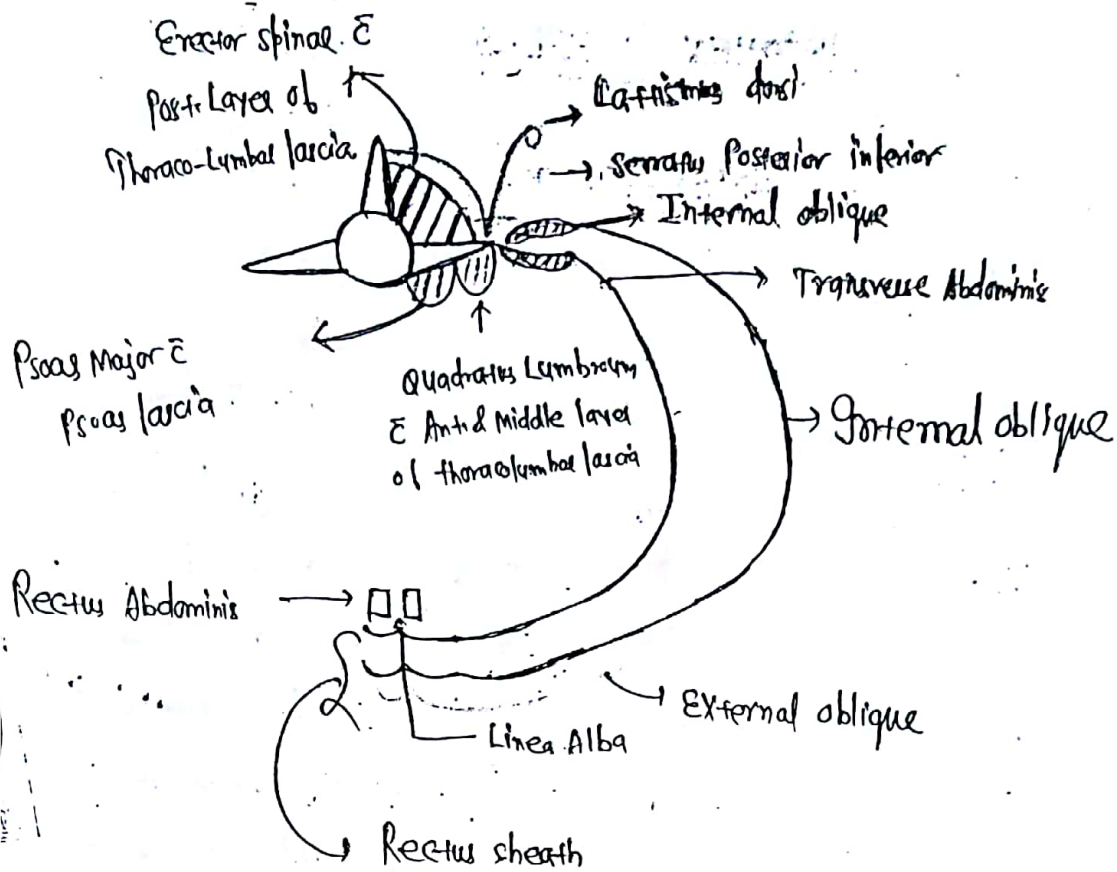 Erector spinae c̄
Post. Layer of
Thoraco-Lumbal fascia
Lattismus dorsi
Serratus Posterior inferior
Internal oblique
Transverse Abdominis
Psoas Major c̄
Psoas fascia
Quadratus Lumbroum
c̄ Ant. & Middle layer
of thoracolumbal fascia
Internal oblique
Rectus Abdominis
External oblique
Linea Alba
Rectus sheath